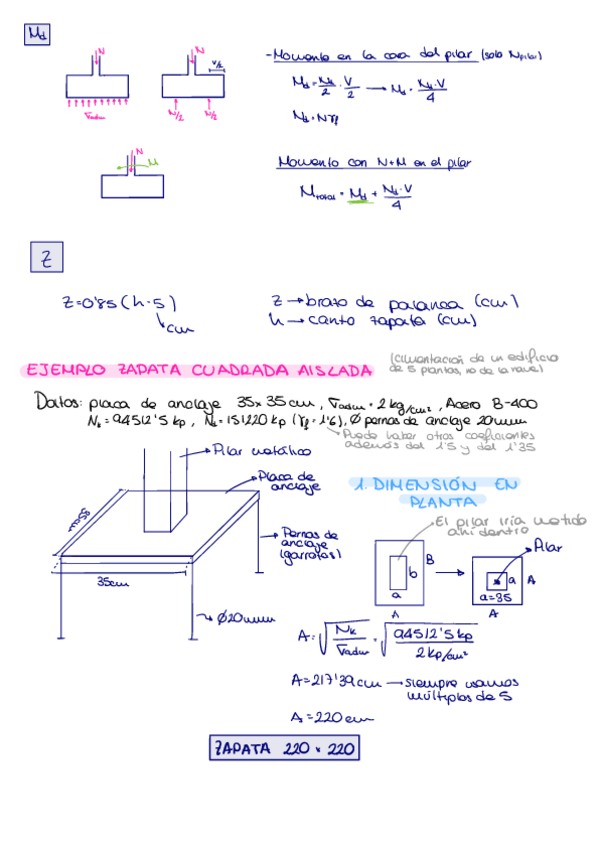 Md
N
N
V/2
σadm
N/2
N/2
-Momento en la cara del pilar (solo Npilar)
Md = Nd/2 · V/2 → Md = Nd·V/4
Nd = Nγf
N
M
Momento con N+M en el pilar
Mtotal = Md + Nd·V/4
Z
Z=0'85(h-5)
cm
Z → brazo de palanca (cm)
h → canto zapata (cm)
EJEMPLO ZAPATA CUADRADA AISLADA
(cimentación de un edificio
de 5 plantas, no de la nave)
Datos: placa de anclaje 35x35cm, σadm = 2 kg/cm², Acero B-400
Nk = 94512'5 kp, Nd = 151220 kp (γf = 1'6), Ø pernos de anclaje 20mm
Puede haber otros coeficientes
además del 1'5 y del 1'35
Pilar metálico
Placa de
anclaje
35cm
Pernos de
anclaje
(garrotas)
35cm
Ø20mm
1. DIMENSIÓN EN
PLANTA
El pilar iría metido
ahí dentro
Pilar
B
b
a
A
a
A
a=35
A
A = √(Nk/σadm) = √(94512'5 kp / 2 kp/cm²)
A = 217'39 cm → siempre usamos
múltiplos de 5
A = 220 cm
ZAPATA 220 x 220